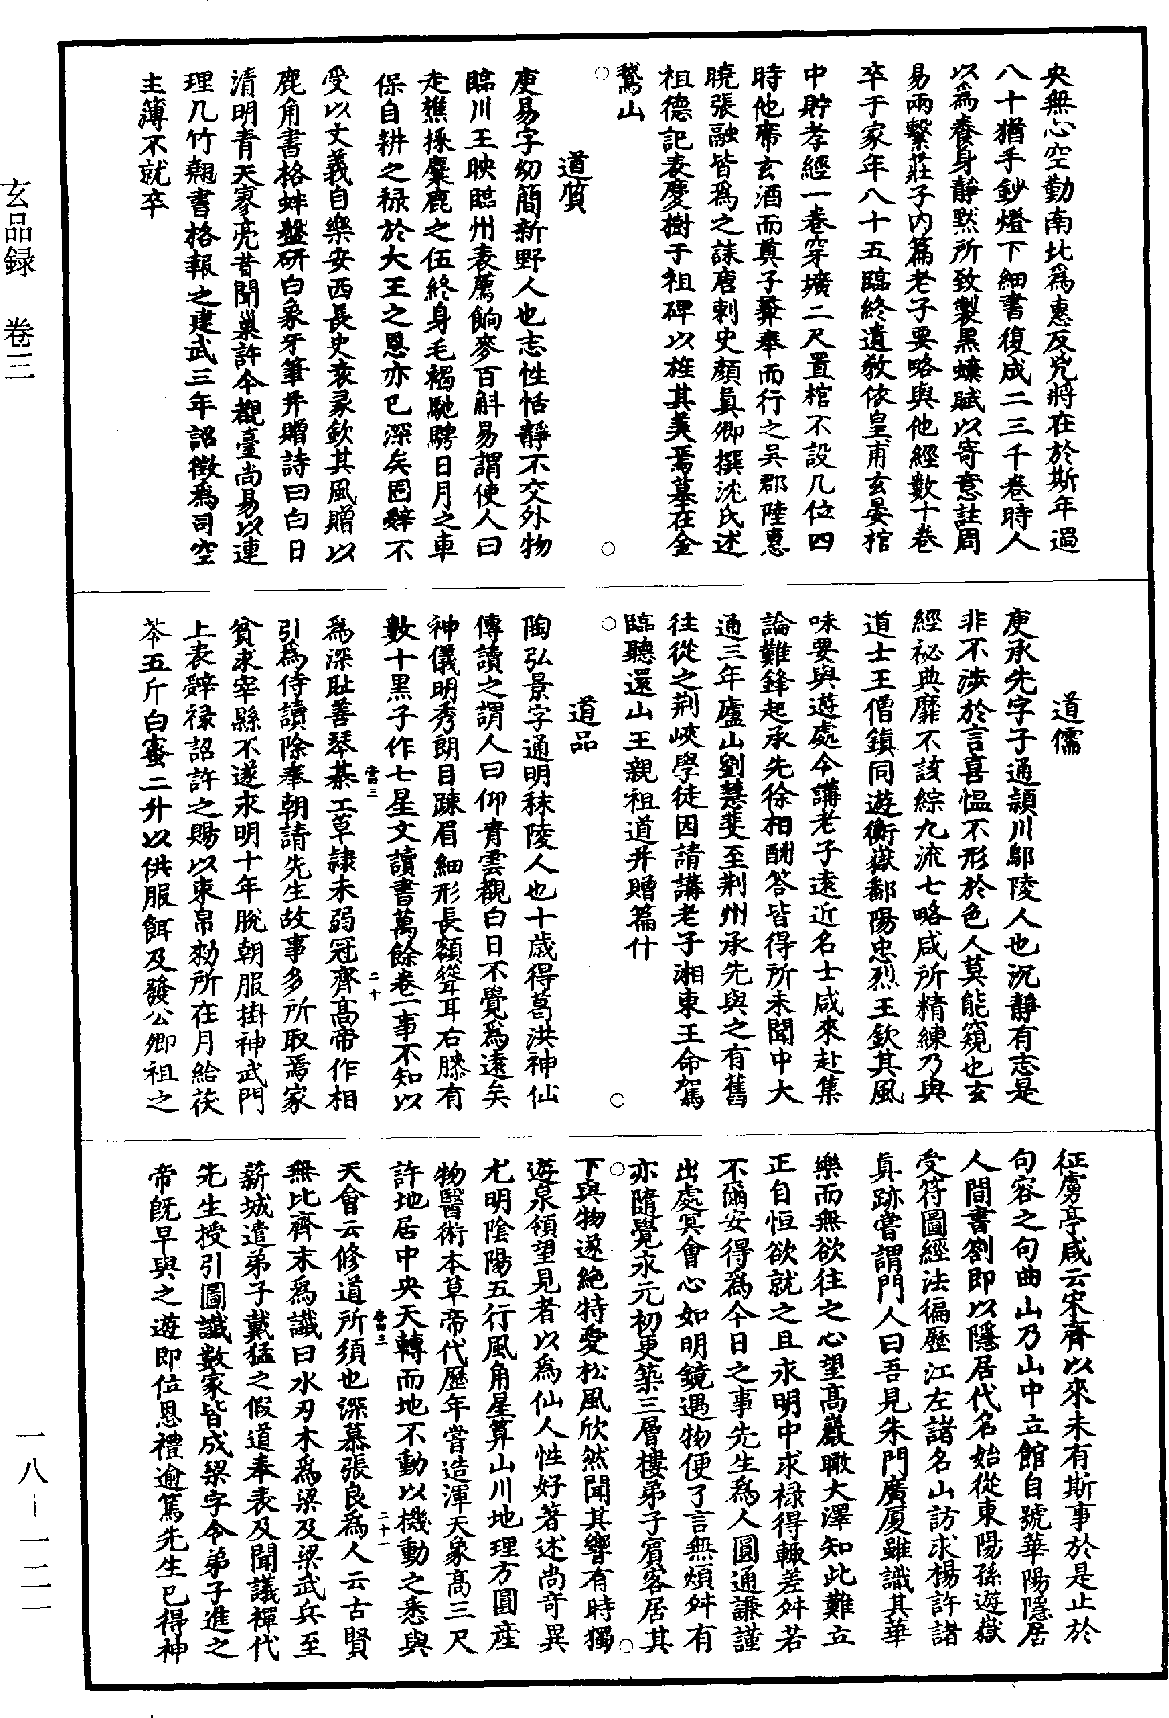 火無心空勤南北爲惠反兇將在於斯年過
八十猶手鈔燈下細書復成二三千卷時人
以爲養身靜默所致製黑蝶賦以寄意註周
易兩繫莊子内篇老子要略與他經數十卷
卒于家年八十五臨終遺敎依皇甫玄晏棺
中貯孝經一卷穿壙二尺置棺不設几位四
時他席玄酒而奠子彝奉而行之吳郡陸惠
曉張融皆爲之誄唐刺史顏眞卿撰沈氏述
祖德記表慶樹于祖碑以旌其美焉墓在金
鵞山
道質
庾易字幼簡新野人也志性恬靜不交外物
臨川王映臨州表薦餉麥百斛易謂使人曰
走樵採麋鹿之伍終身毛褐馳騁日月之車
保自耕之禄於大王之恩亦已深矣因辭不
受以文義自樂安西長史袁彖欽其風贈以
鹿角書格蚌盤研白象牙筆幷贈詩曰白日
清明青天寥亮昔聞巢許今覩臺尚易以連
理几竹翹書格報之建武三年詔徵爲司空
主薄不就卒
道儒
庾承先字子通潁川鄢陵人也沉靜有志是
非不渉於言喜愠不形於色人莫能窺也玄
經祕典靡不該綜九流七略咸所精練乃與
道士王僧鎮同遊衡嶽鄱陽忠烈王欽其風
味要與遊處令講老子遠近名士咸來赴集
論難鋒起承先徐相酬答皆得所未聞中大
通三年廬山劉慧斐至荆州承先與之有舊
往從之荆峽學徒因請講老子湘東王命駕
臨聽還山王親祖道幷贈篇什
道品
陶弘景字通明秣陵人也十歲得葛洪神仙
傳讀之謂人曰仰青雲覩白日不覺爲遠矣
神儀明秀朗目踈眉細形長額聳耳右膝有
數十黑子作七星文讀書萬餘卷一事不知以
爲深耻善琴棊工草隷未弱冠齊高帝作相
引爲侍讀除奉朝請先生故事多所取焉家
貧求宰縣不遂永明十年脫朝服掛神武門
上表辭禄詔許之賜以束帛勑所在月給茯
苓五斤白蜜二升以供服餌及發公卿祖之
征虜亭咸云宋齊以來未有斯事於是止於
句容之句曲山乃山中立館自號華陽隱居
人間書劉即以隱居代名始從東陽孫遊嶽
受符圖經法徧歷江左諸名山訪求楊許諸
眞跡嘗謂門人曰吾見朱門廣厦雖識其華
樂而無欲往之心望高巖瞰大澤知此難立
正自恒欲就之且永明中求禄得輙差舛若
不爾安得爲今日之事先生爲人圓通謙謹
出處冥會心如明鏡遇物便了言無煩舛有
亦隨覺永元初更築三層樓弟子賓客居其
下與物遂絶特愛松風欣然聞其響有時獨
遊泉領望見者以爲仙人性好著述尚奇異
尤明陰陽五行風角星算山川地理方圓産
物醫術本草帝代歷年嘗造渾天象高三尺
許地居中央天轉而地不動以機動之悉與
天會云修道所須也深慕張良爲人云古賢
無比齊末爲讖曰水刃木爲梁及梁武兵至
薪城遣弟子戴猛之假道奉表及聞議禪代
先生授引圖讖數家皆成梁字令弟子進之
帝既早與之遊即位恩禮逾篤先生已得神
玄品録　卷三
一八—一二一